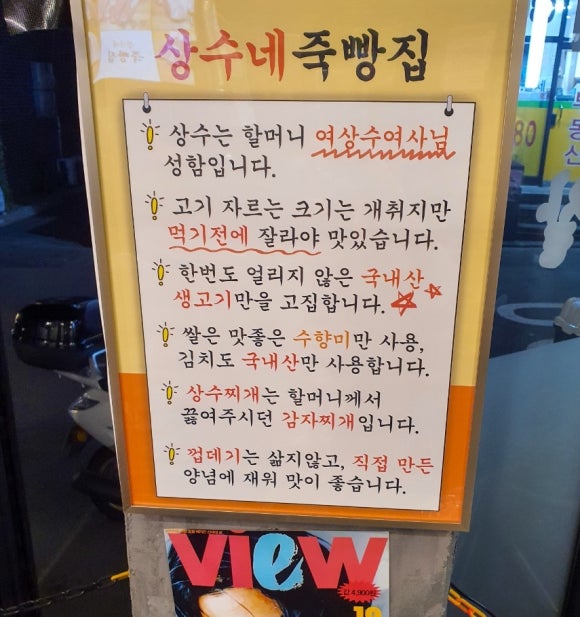 상수네 죽빵집
상수는 할머니 여상수여사님
성함입니다.
고기 자르는 크기는 개취지만
먹기전에 잘라야 맛있습니다.
한번도 얼리지 않은 국내산
생고기만을 고집합니다.
쌀은 맛좋은 수향미만 사용,
김치도 국내산만 사용합니다.
상수찌개는 할머니께서
끓여주시던 감자찌개입니다.
껍데기는 삶지않고, 직접 만든
양념에 재워 맛이 좋습니다.
view
값 4,900원
10